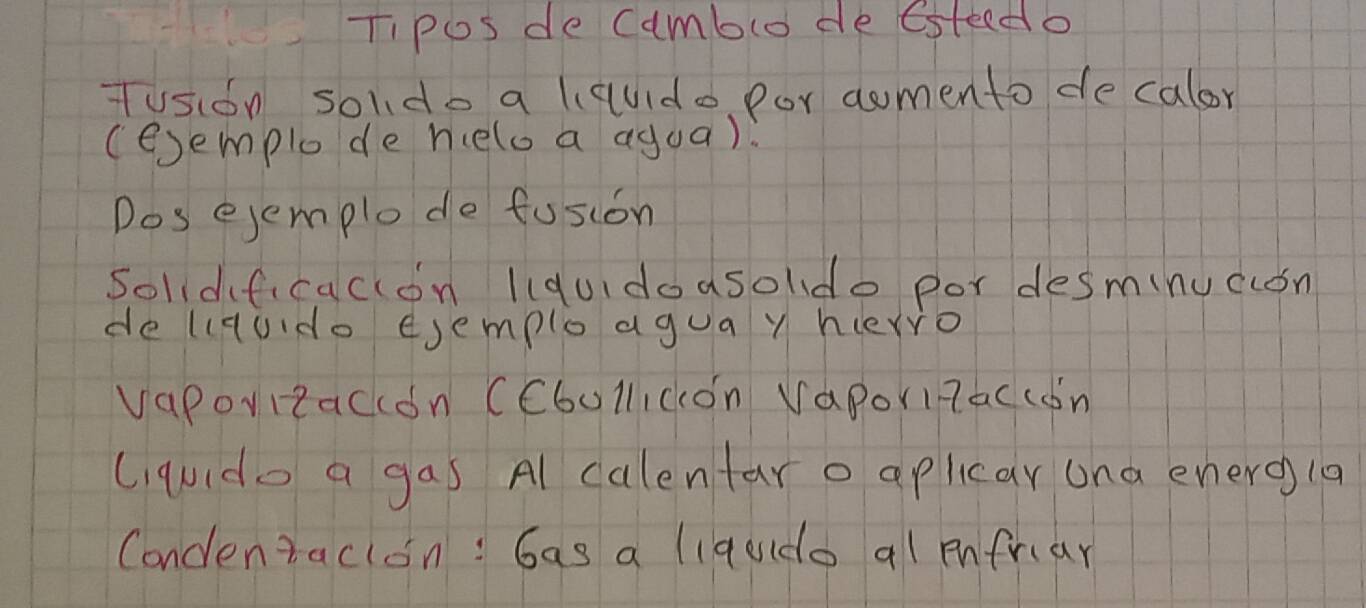 Tipos de cambio de Estado
Fusión solido a liquido por aumento de calor
(ejemplo de hielo a agua).
Dos ejemplo de fusión
Solidificación liquido a solido por desminución
de liquido Ejemplo agua y hierro
Vaporización (Ebullición Vaporización
Liquido a gas Al calentar o aplicar una energia
Condenzación: Gas a liquido al enfriar